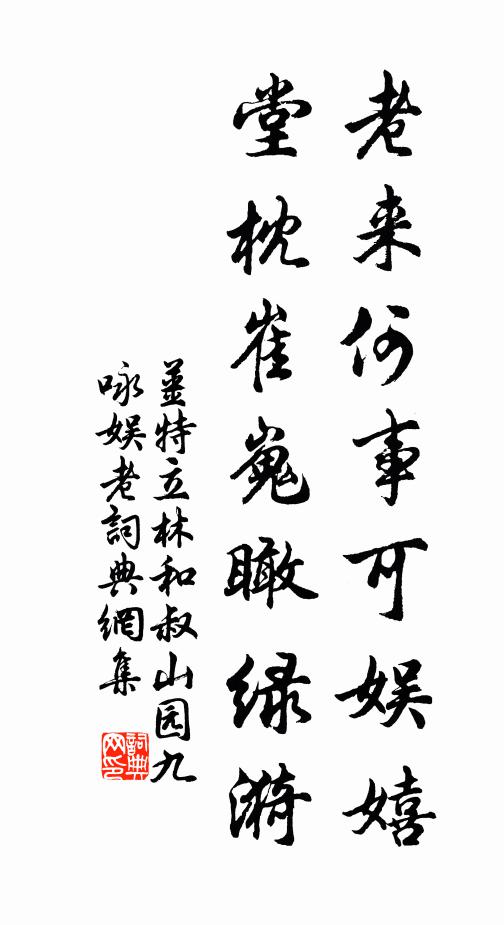 老来何事可娱嬉
堂枕崔嵬瞰绿漪
姜特立林和叔山园九
咏娱老詞典網集
詞典网印